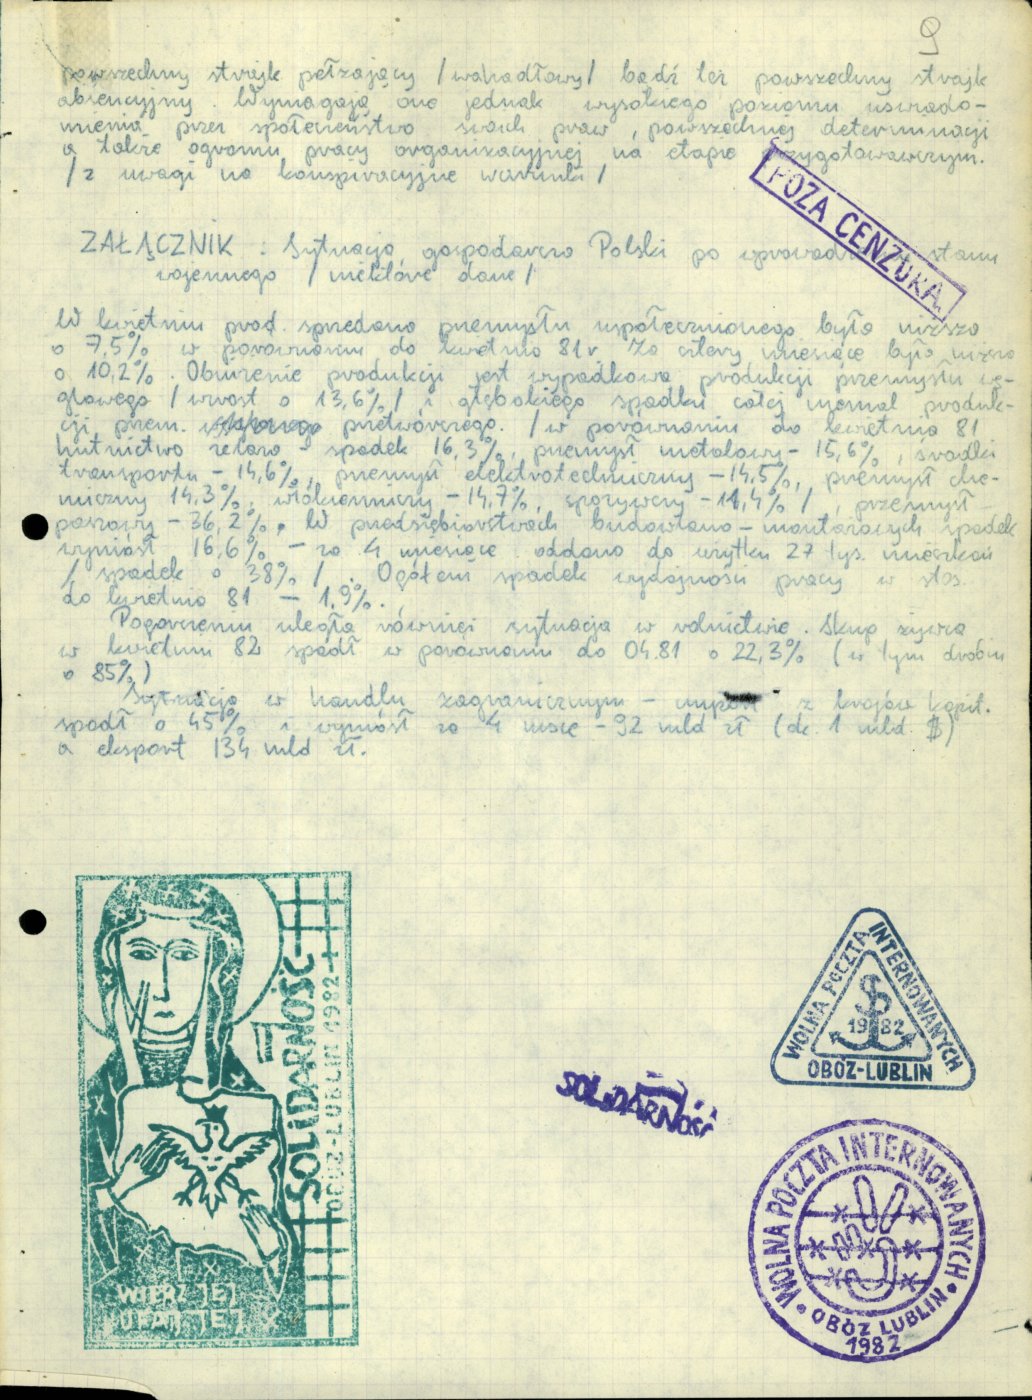 9
powszechny strajk pełzający /wahadłowy/ bądź też powszechny strajk
absencyjny. Wymagają one jednak wysokiego poziomu uświado-
mienia przez społeczeństwo swoich praw, powszechnej determinacji
a także ogromu pracy organizacyjnej na etapie przygotowawczym.
/z uwagi na konspiracyjne warunki/
POZA CENZURĄ
ZAŁĄCZNIK : Sytuacja gospodarcza Polski po wprowadz stanu
wojennego /niektóre dane/
W kwietniu prod. sprzedana przemysłu uspołecznionego była niższa
o 7,5% w porównaniu do kwietnia 81 r. Za cztery miesiące była niższa
o 10,2%. Obniżenie produkcji jest wypadkową produkcji przemysłu wę-
glowego /wzrost o 13,6%/ i głębokiego spadku całej niemal produk-
cji przem. przetwórczego. /w porównaniu do kwietnia 81
hutnictwo żelaza - spadek 16,3%, przemysł metalowy - 15,6%, środki
transportu - 14,6%, przemysł elektrotechniczny - 14,5%, przemysł che-
miczny 14,3%, włókienniczy - 14,7%, spożywczy - 11,4%/, przemysł
paszowy - 36,2%. W przedsiębiorstwach budowlano-montażowych spadek
wyniósł 16,6% - za 4 miesiące oddano do użytku 27 tys. mieszkań
/spadek o 38%/. Ogółem spadek wydajności pracy w stos.
do kwietnia 81 - 1,9%.
Pogorszeniu uległa również sytuacja w rolnictwie. Skup żywca
w kwietniu 82 spadł w porównaniu do 04.81 o 22,3% (w tym drobiu
o 85%)
Sytuacja w handlu zagranicznym - import z krajów kapit.
spadł o 45% i wyniósł za 4 - 92 mld zł (ok. 1 mld. $)
a eksport 134 mld zł.
SOLIDARNOŚĆ
OBÓZ-LUBLIN 1982
WIERZ JEJ
UFAJ JEJ
SOLIDARNOŚĆ
WOLNA POCZTA INTERNOWANYCH
1982
OBÓZ-LUBLIN
WOLNA POCZTA INTERNOWANYCH
OBÓZ LUBLIN
1982